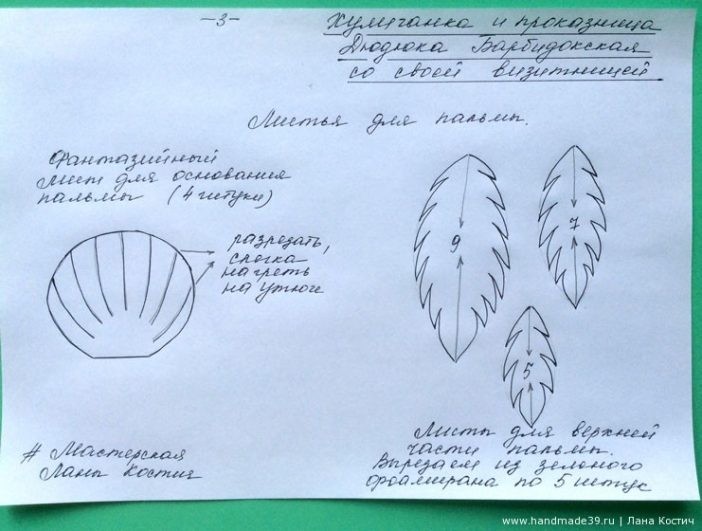 -3-
Хулиганка и проказница
Дюдюка Барбидокская
со своей визитницей
Листья для пальмы.
Фантазийный
лист для основания
пальмы (4 штуки)
разрезать,
слегка
нагреть
на утюге
9
7
5
Листы для верхней
части пальмы.
Вырезаем из зеленого
фоамирана по 5 штук
# Мастерская
Ланы Костич
www.handmade39.ru | Лана Костич